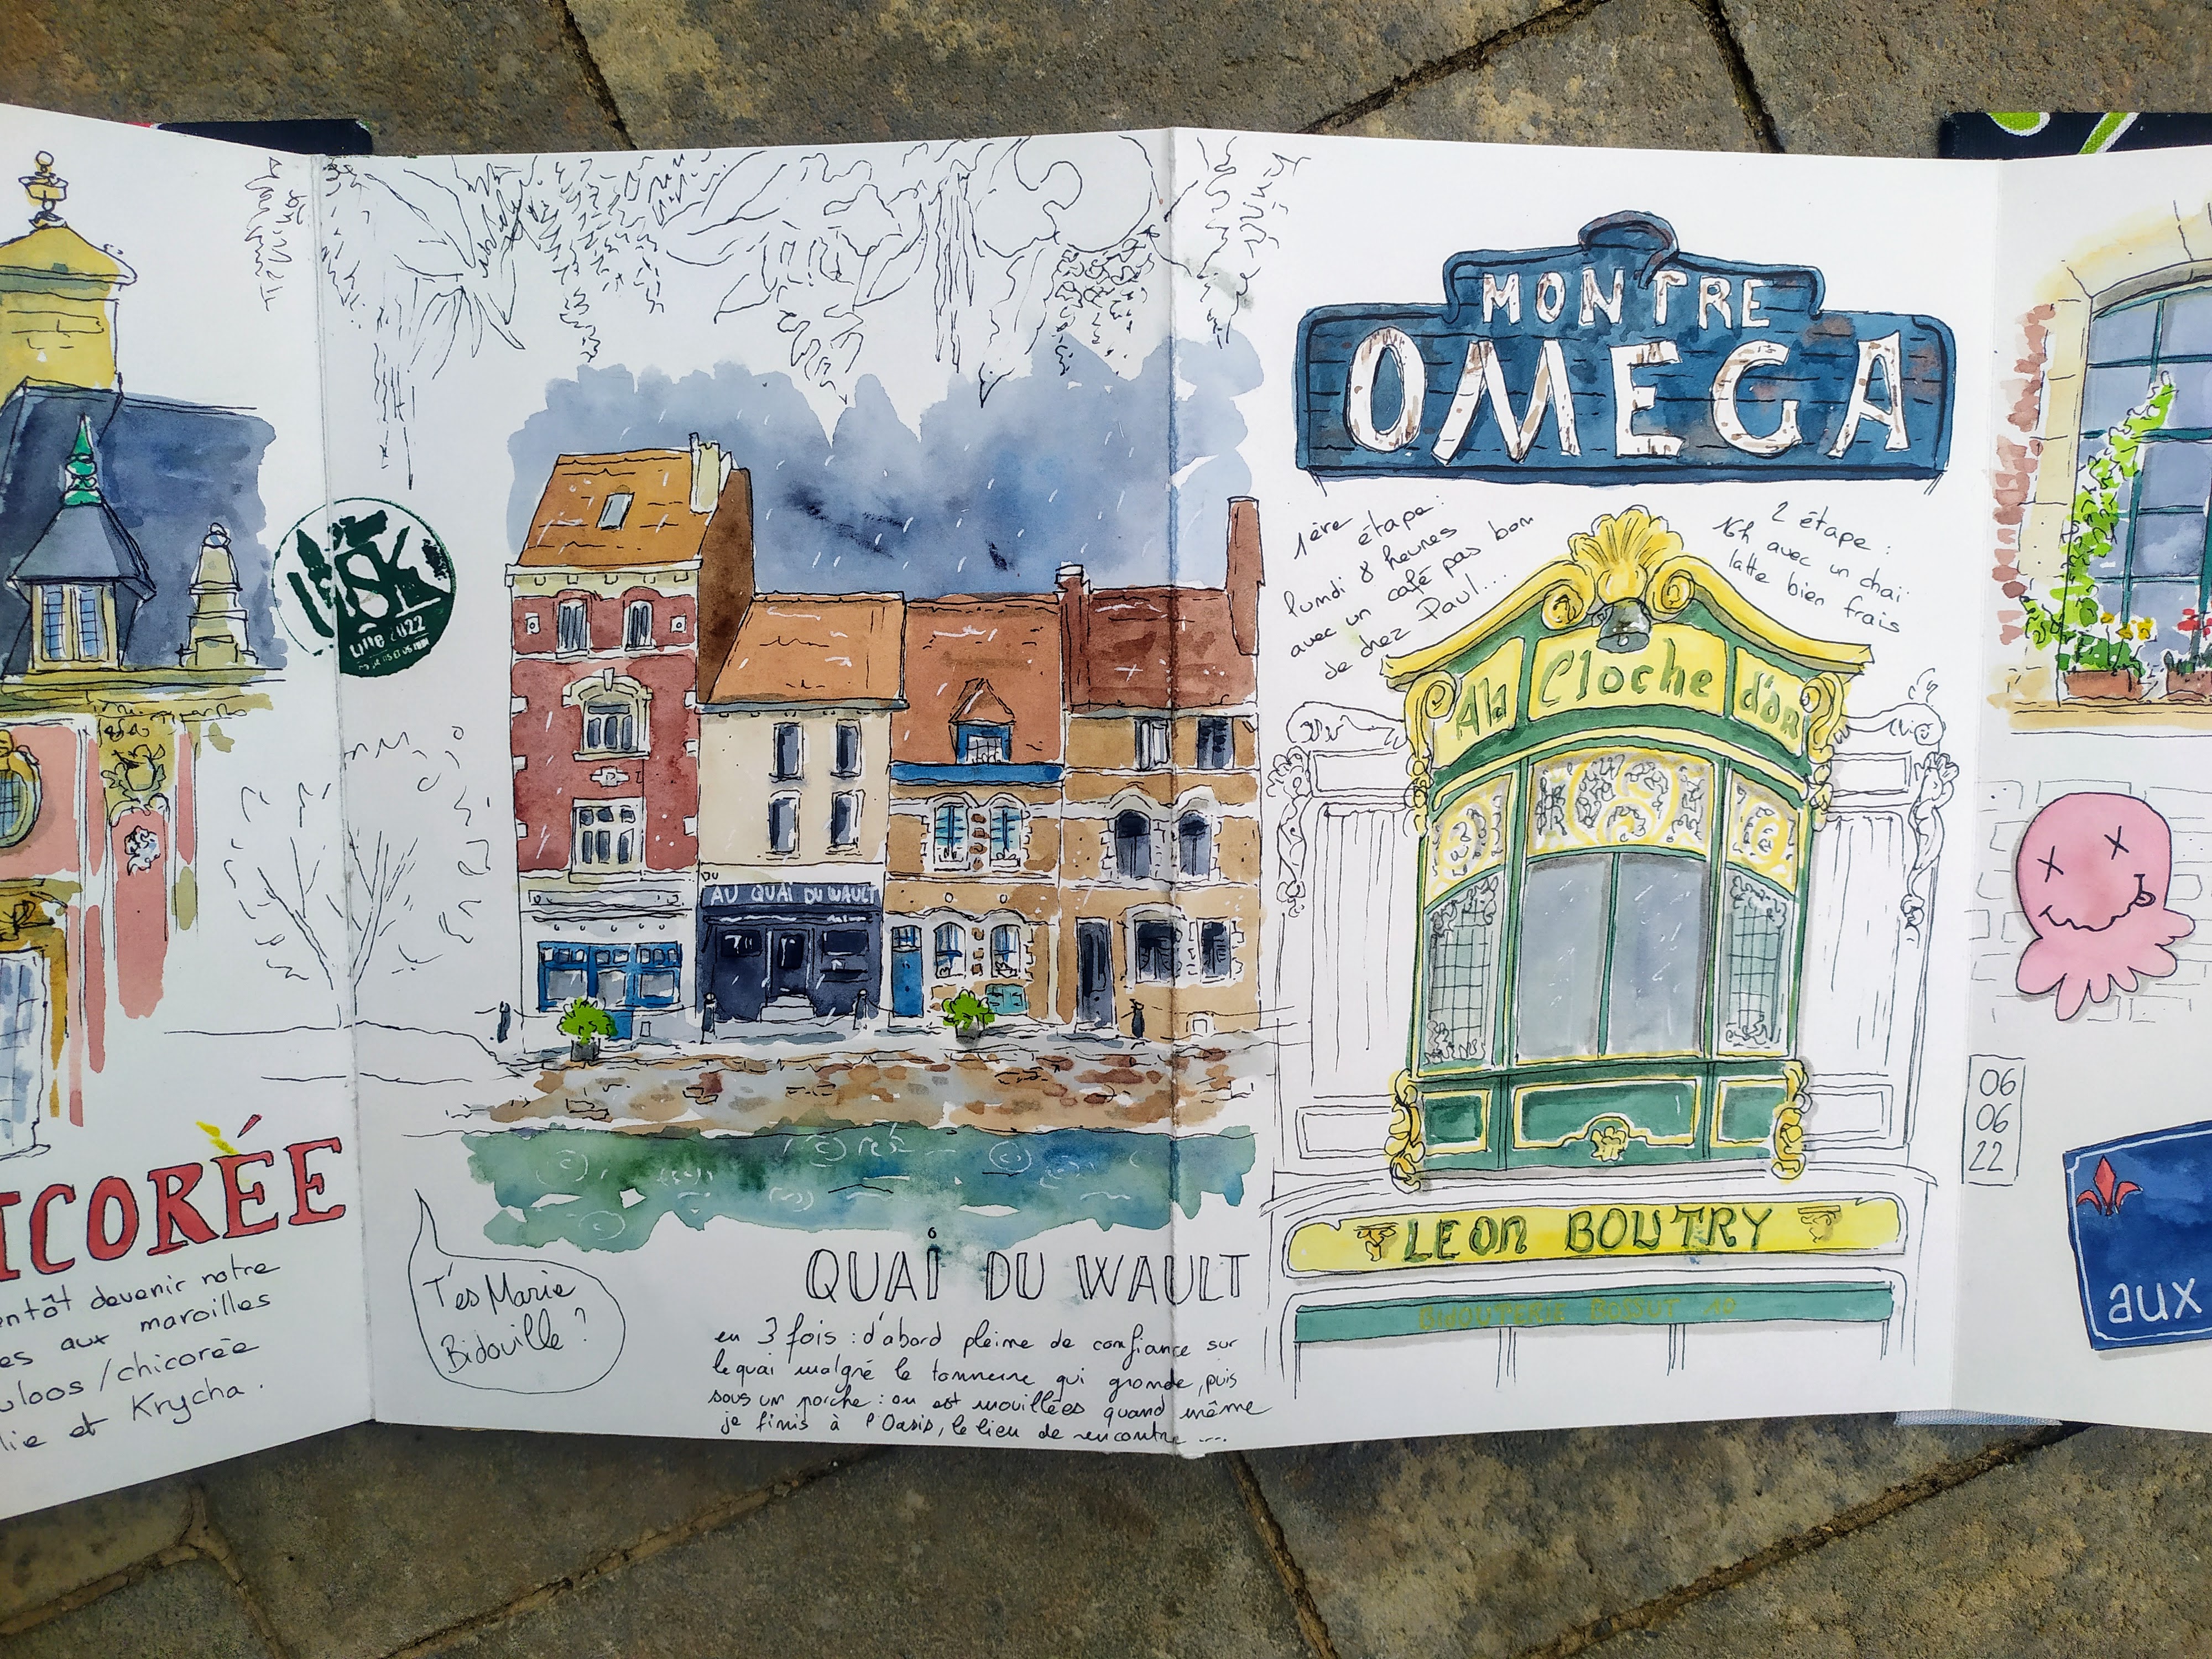 USK
Lille 2022
ICOREE
entôt devenir notre
es aux maroilles
uloos / chicorée
lie et Krycha.
AU QUAI DU WAULT
T'es Marie
Bidouille ?
QUAI DU WAULT
en 3 fois : d'abord pleine de confiance sur
le quai malgré le tonnerre qui gronde, puis
sous un porche : on est mouillées quand même
je finis à l'Oasis, le lieu de rencontre ....
MONTRE
OMEGA
1ère étape :
lundi 8 heures
avec un café pas bon
de chez Paul....
2 étape :
16h avec un chai
latte bien frais
A la Cloche d'or
LEON BOUTRY
BIJOUTERIE BOSSUT
06
06
22
aux